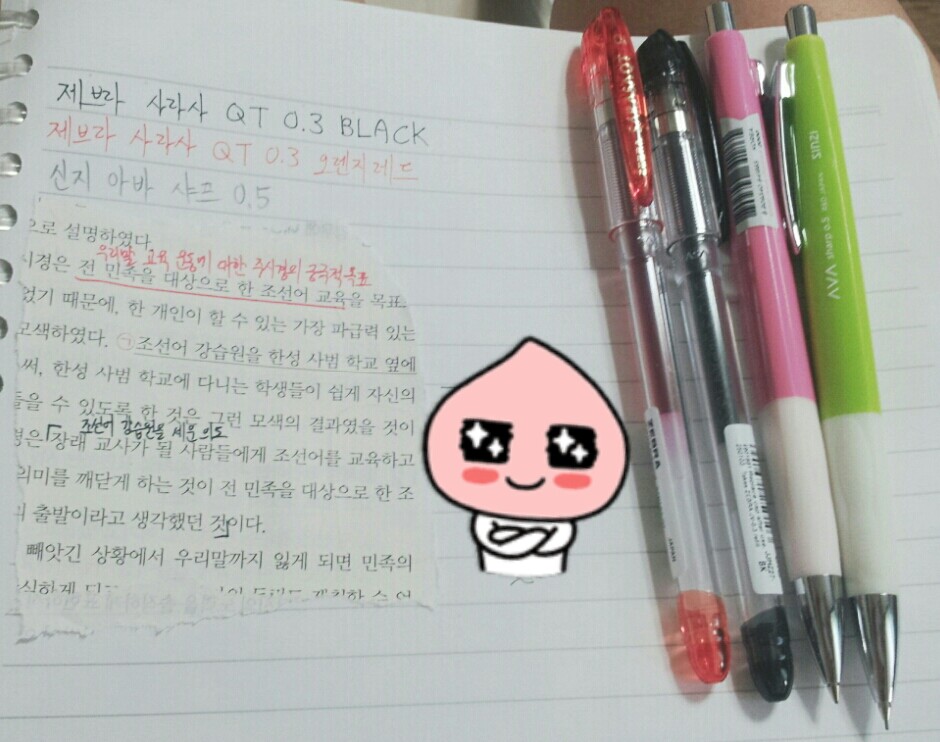 제브라 사라사 QT 0.3 BLACK
제브라 사라사 QT 0.3 오렌지레드
신지 아바 샤프 0.5
으로 설명하였다.
우리말 교육 운동에 대한 주시경의 궁극적 목표
시경은 전 민족을 대상으로 한 조선어 교육을 목표
었기 때문에, 한 개인이 할 수 있는 가장 파급력 있는
모색하였다. ㉠조선어 강습원을 한성 사범 학교 옆에
써, 한성 사범 학교에 다니는 학생들이 쉽게 자신의
들을 수 있도록 한 것은 그런 모색의 결과였을 것이
조선어 강습원을 세운 의도
경은 「장래 교사가 될 사람들에게 조선어를 교육하고
의미를 깨닫게 하는 것이 전 민족을 대상으로 한 조
의 출발이라고 생각했던 것」이다.
빼앗긴 상황에서 우리말까지 잃게 되면 민족의
ZEBRA
VAV